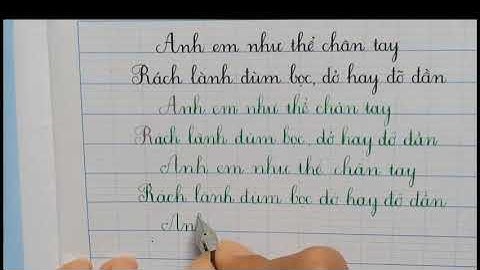 Anh em như thể chân tay
Rách lành đùm bọc, dở hay đỡ đần
Anh em như thể chân tay
Rách lành đùm bọc, dở hay đỡ đần
Anh em như thể chân tay
Rách lanh đum boc dở hay đỡ đần
An